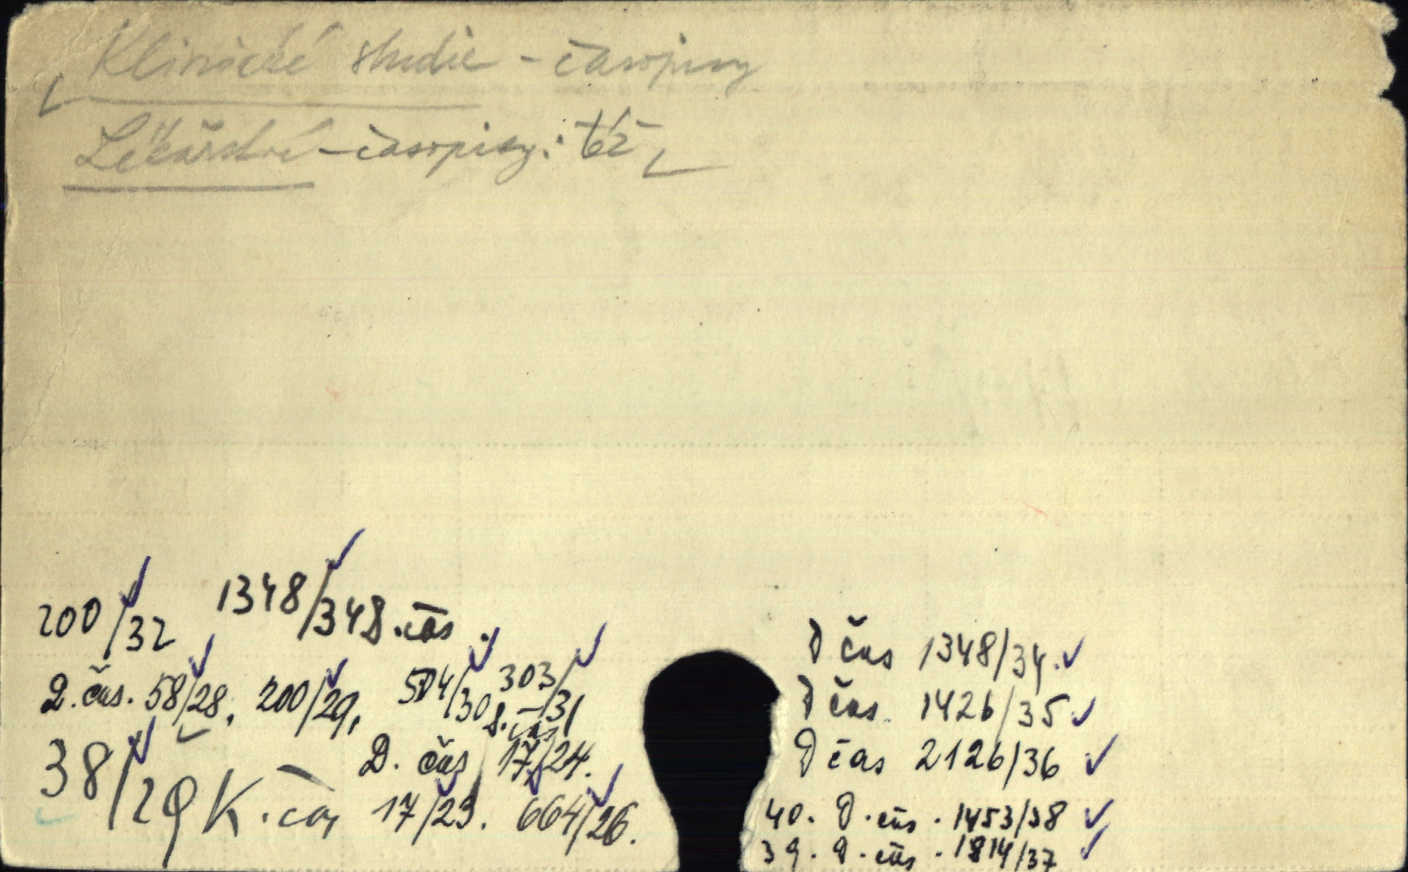 Klinické studie - časopisy
Lékařství - časopisy: též
200/32 1348/34 D.čas.
D.čas. 58/28, 200/29, 584/30 303/31
D.čas
D. čas 17/24.
38/29 K.čas 17/23. 664/26.
D čas 1348/34.
D čas. 1426/35
D čas 2126/36
40. D.čas. 1453/38
39. D.čas. 1814/37